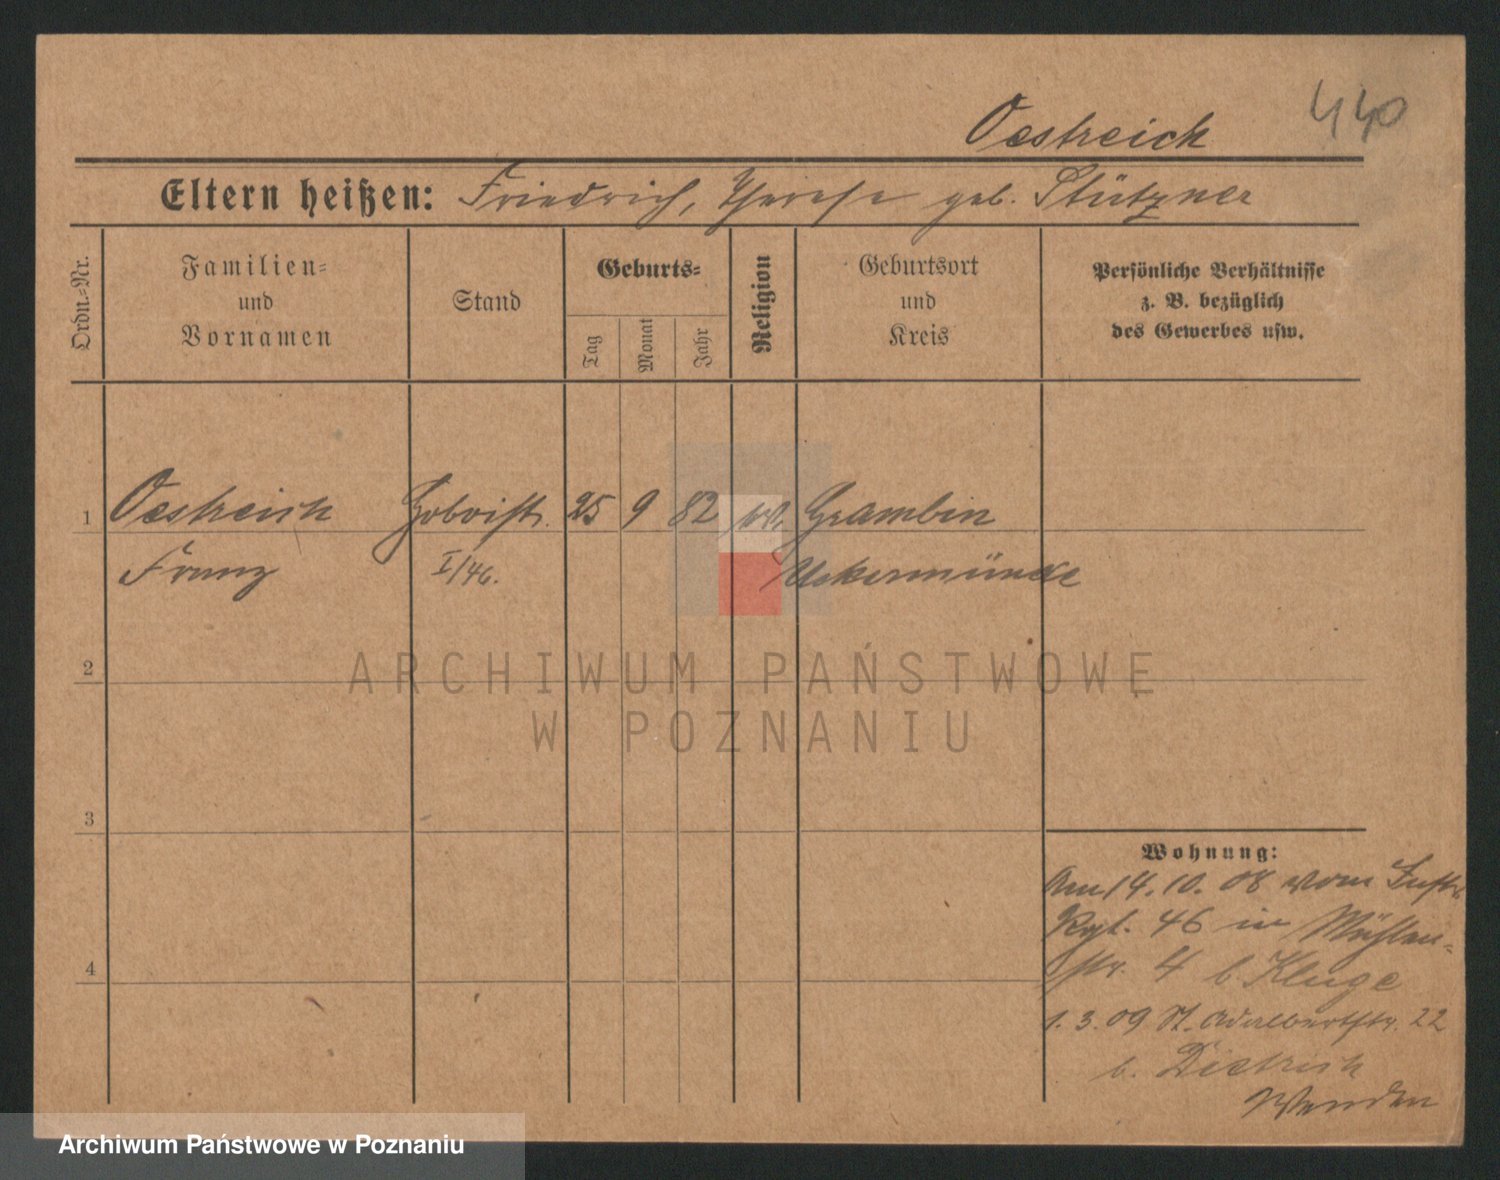 440
Oestreich
Eltern heißen: Friedrich, Therese geb. Stützner
Ordn.-Nr.
Familien-
und
Vornamen
Stand
Geburts-
Tag
Monat
Jahr
Religion
Geburtsort
und
Kreis
Persönliche Verhältnisse
z. B. bezüglich
des Gewerbes usw.
1 Oestreich Hoboist. 25 9 82 Grambin
Franz I/46. Uekermünde
2
3
4
ARCHIWUM PAŃSTWOWE
W POZNANIU
Wohnung:
Am 14. 10. 08 vom Inftr
Rgt. 46 in Mühlen-
str. 4 b. Kluge
1. 3. 09 St. Adalbertstr. 22
b. Dietrich
Wenden
Archiwum Państwowe w Poznaniu